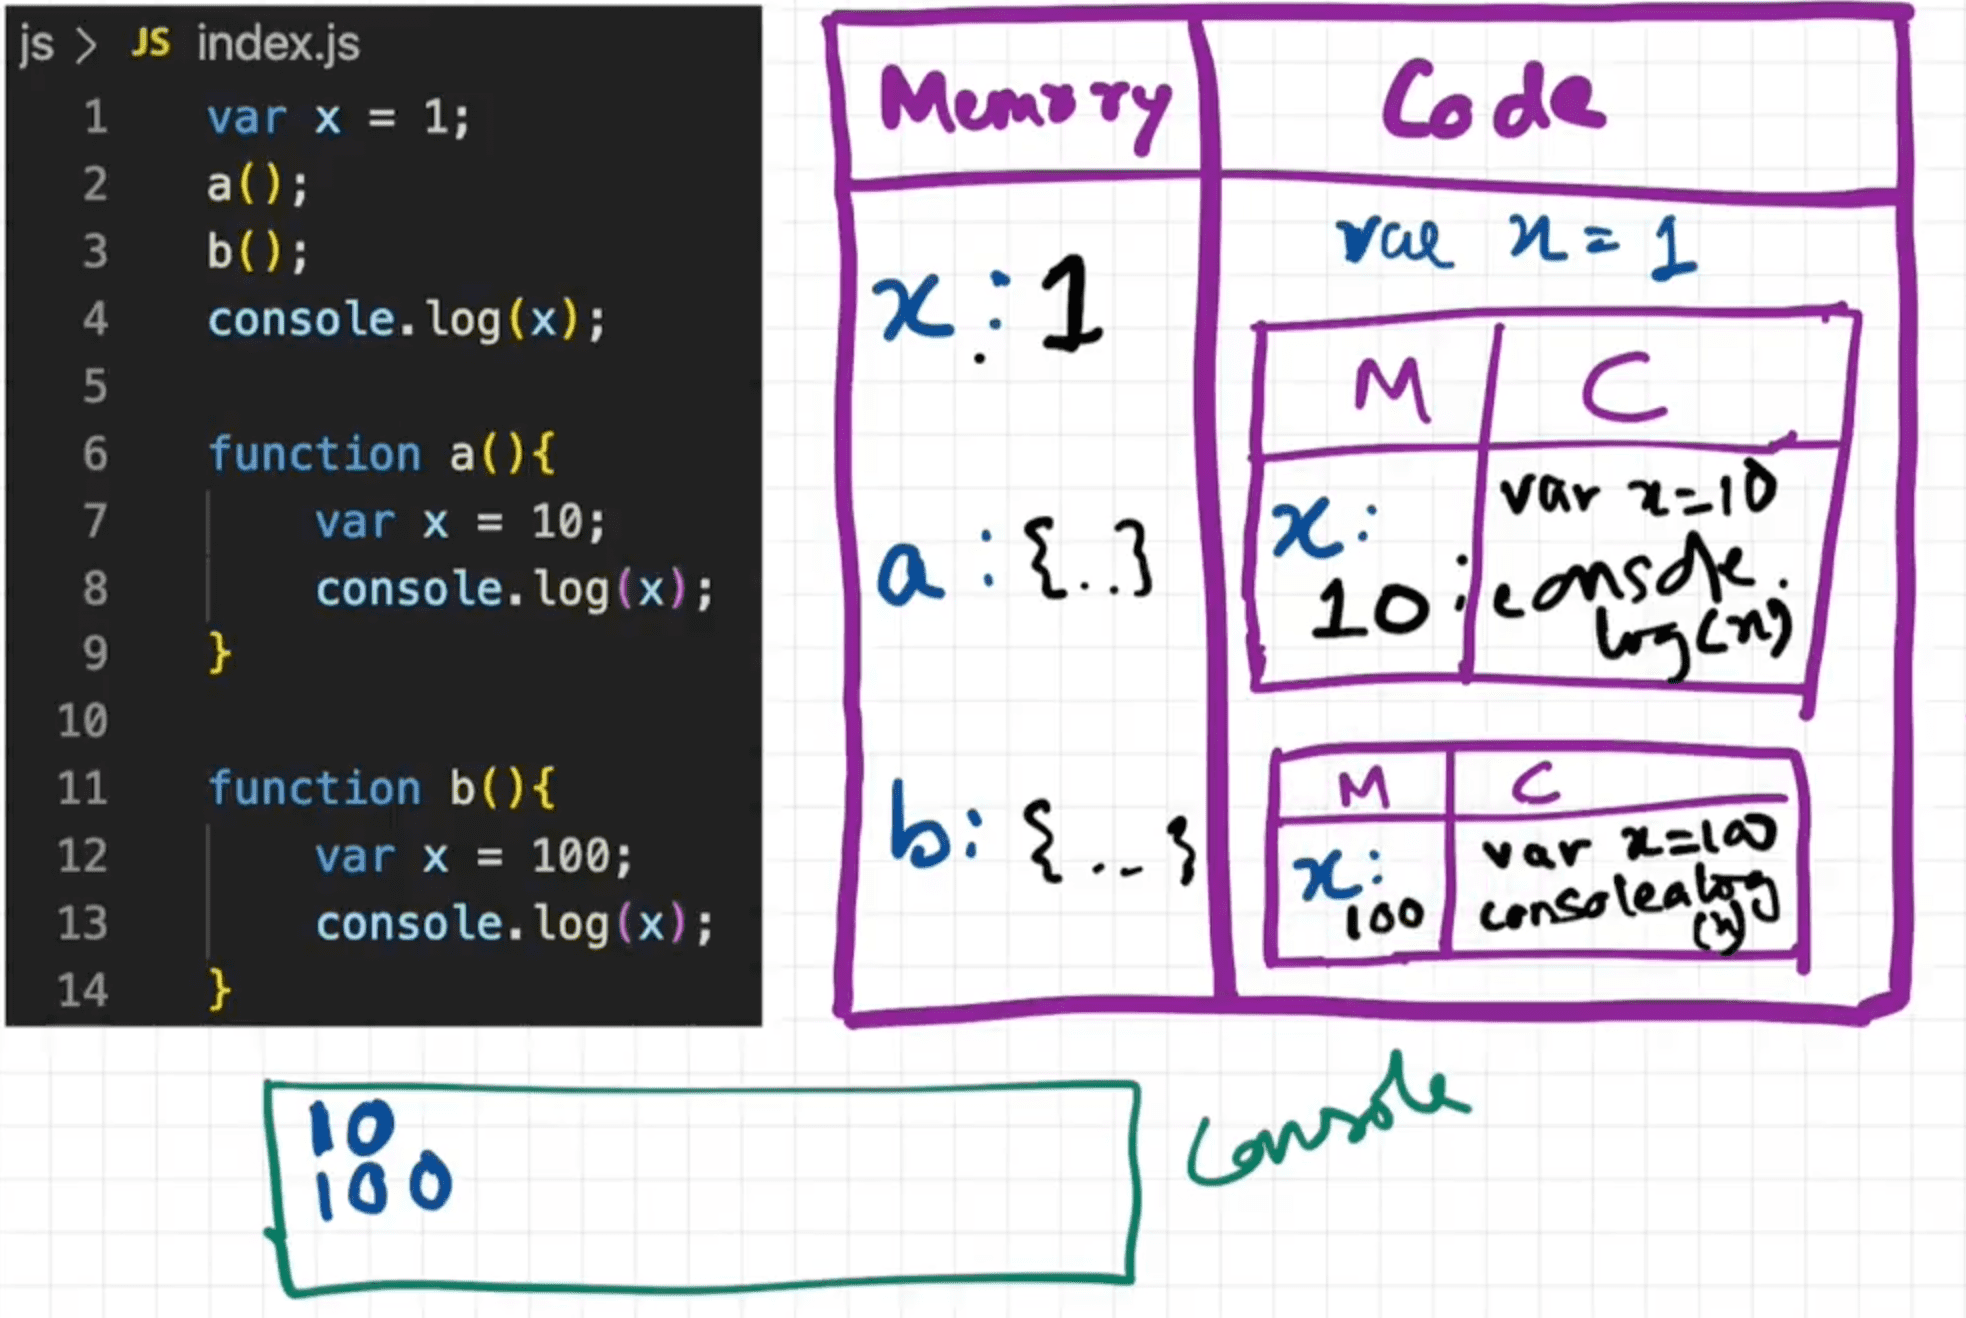 js > JS index.js
1 var x = 1;
2 a();
3 b();
4 console.log(x);
5
6 function a(){
7 var x = 10;
8 console.log(x);
9 }
10
11 function b(){
12 var x = 100;
13 console.log(x);
14 }
Memory Code
x : 1
a : {..}
b : {...}
var x = 1
M C
x :
10
var x=10
console.
log(x)
M C
x :
100
var x=100
console.log
(x)
10
100
Console